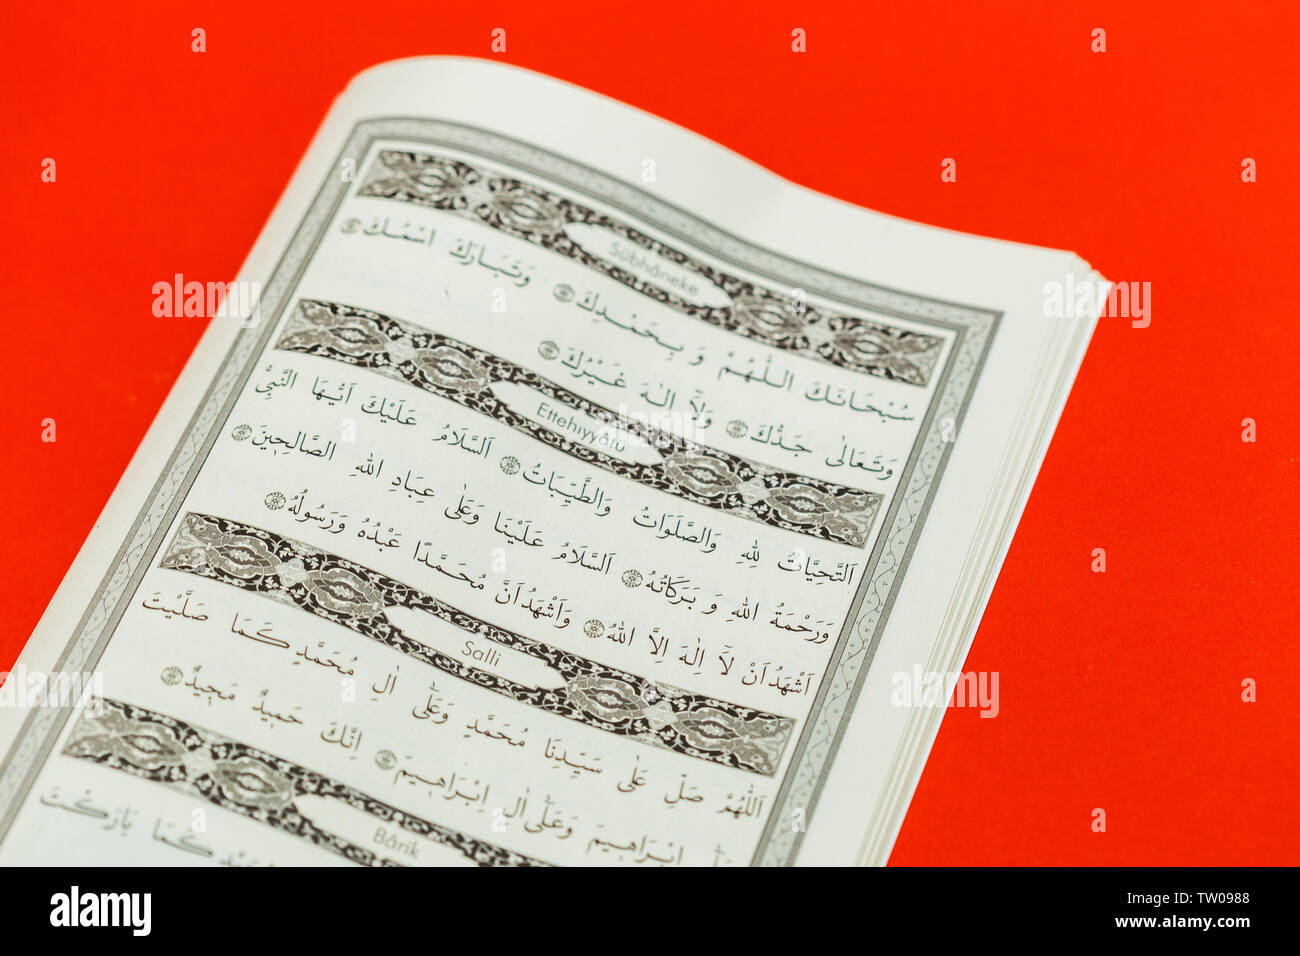 Sübhâneke
سُبْحَانَكَ اللّٰهُمَّ وَ بِحَمْدِكَ ۞ وَتَبَارَكَ اسْمُكَ ۞
وَتَعَالٰى جَدُّكَ ۞ وَلَٓا اِلٰهَ غَيْرُكَ ۞
Ettehıyyâtü
اَلتَّحِيَّاتُ لِلّٰهِ وَالصَّلَوَاتُ وَالطَّيِّبَاتُ ۞ اَلسَّلَامُ عَلَيْكَ اَيُّهَا النَّبِيُّ
وَرَحْمَةُ اللهِ وَ بَرَكَاتُهُ ۞ اَلسَّلَامُ عَلَيْنَا وَعَلٰى عِبَادِ اللهِ الصَّالِحِينَ ۞
اَشْهَدُ اَنْ لَٓا اِلٰهَ اِلَّا اللهُ ۞ وَاَشْهَدُ اَنَّ مُحَمَّدًا عَبْدُهُ وَرَسُولُهُ ۞
Salli
اَللّٰهُمَّ صَلِّ عَلٰى سَيِّدِنَا مُحَمَّدٍ وَعَلٰٓى اٰلِ مُحَمَّدٍ كَمَا صَلَّيْتَ
اِبْرَاهِيمَ وَعَلٰٓى اٰلِ اِبْرَاهِيمَ ۞ اِنَّكَ حَمِيدٌ مَجِيدٌ ۞
Bârik
كَمَا بَارَكْتَ
alamy
alamy
Image ID: TW0988
www.alamy.com